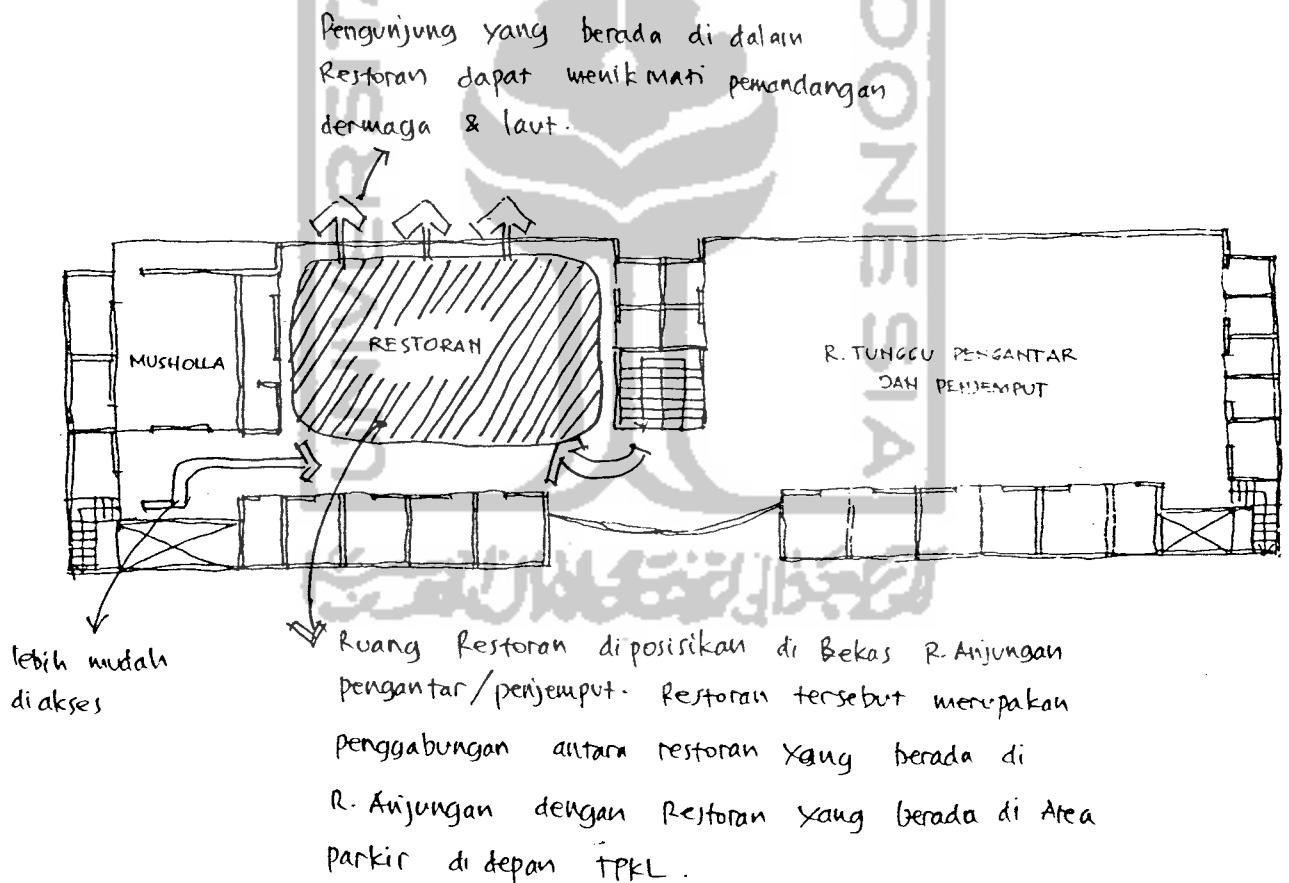 Pengunjung yang berada di dalam
Restoran dapat menikmati pemandangan
dermaga & laut.
MUSHOLLA
RESTORAN
R. TUNGGU PENGANTAR
DAN PENJEMPUT
lebih mudah
diakses
Ruang Restoran diposisikan di Bekas R. Anjungan
pengantar/penjemput. Restoran tersebut merupakan
penggabungan antara restoran yang berada di
R. Anjungan dengan Restoran yang berada di Area
parkir di depan TPKL.
UNIVERSITAS
INDONESIA